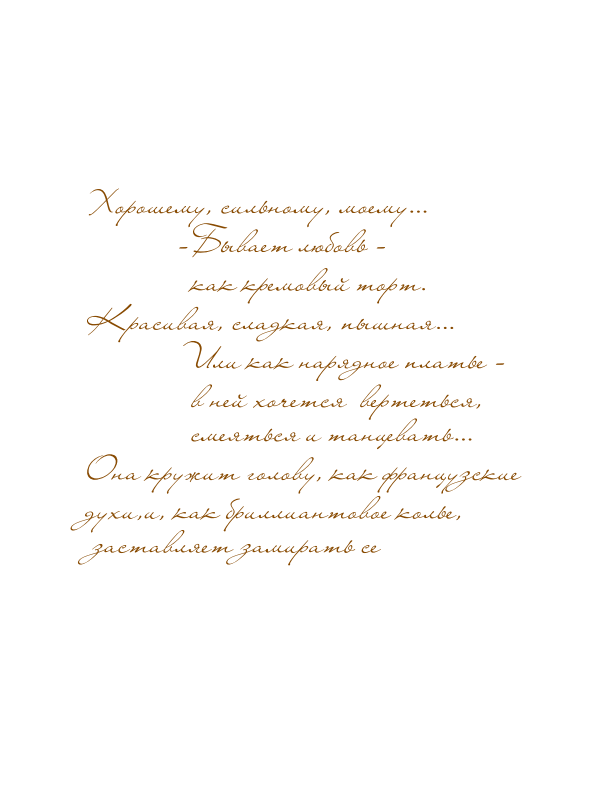 Хорошему, сильному, моему...
- Бывает любовь -
как кремовый торт.
Красивая, сладкая, пышная...
Или как нарядное платье -
в ней хочется вертеться,
смеяться и танцевать...
Она кружит голову, как французские
духи,и, как бриллиантовое колье,
заставляет замирать се